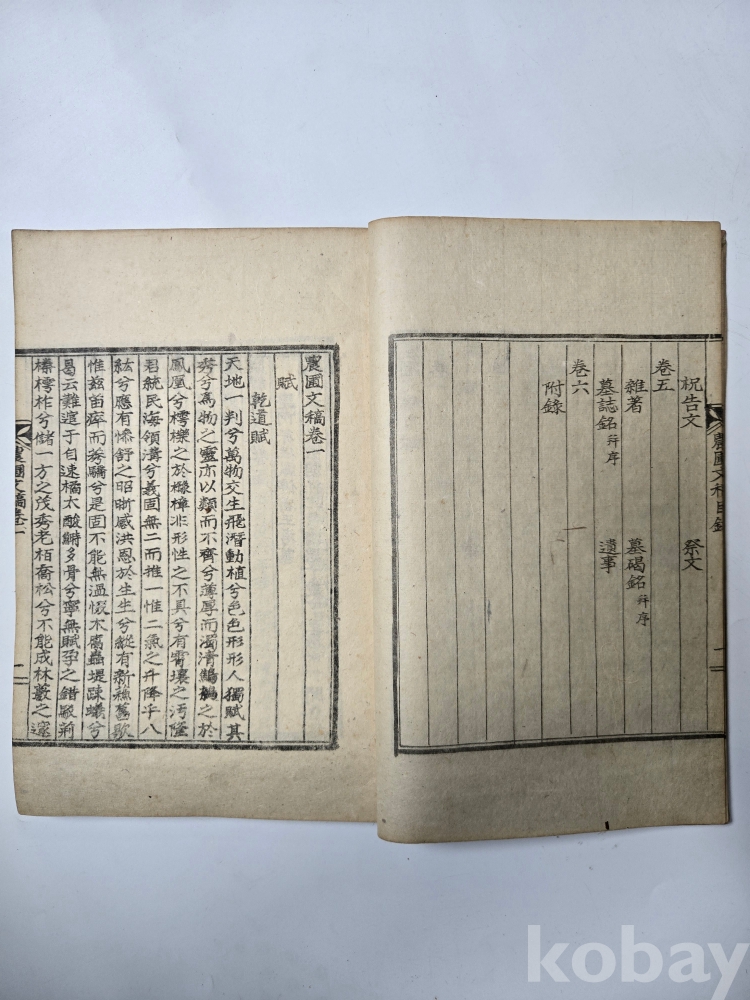 祝告文 祭文
卷五
雜著 墓碣銘 幷序
墓誌銘 幷序 遺事
卷六
附錄
農圃文稿目錄
一
農圃文稿卷一
賦
乾道賦
天地一判兮萬物交生飛潛動植兮色色形形人獨賦其
秀兮爲物之靈亦以類而不齊兮薄厚而濁清鷦鵬之於
鳳凰兮樗櫟之於櫲樟非形性之不具兮有霄壤之汚隆
君統民海領溝兮義固無二而推一惟二氣之升降乎八
紘兮應有慘舒之昭晣感洪恩於生生兮縱有新穐舊歌
惟玆菑瘁而 兮是固不能無過惙木腐蟲堤踈蟻兮
曷云難遣于自速橘太酸鰣多骨兮寧無賦孕之錯駁荊
榛樗柞兮儲一方之茂秀老栢喬松兮不能成林藪之邃
農圃文稿卷一
一
kobay